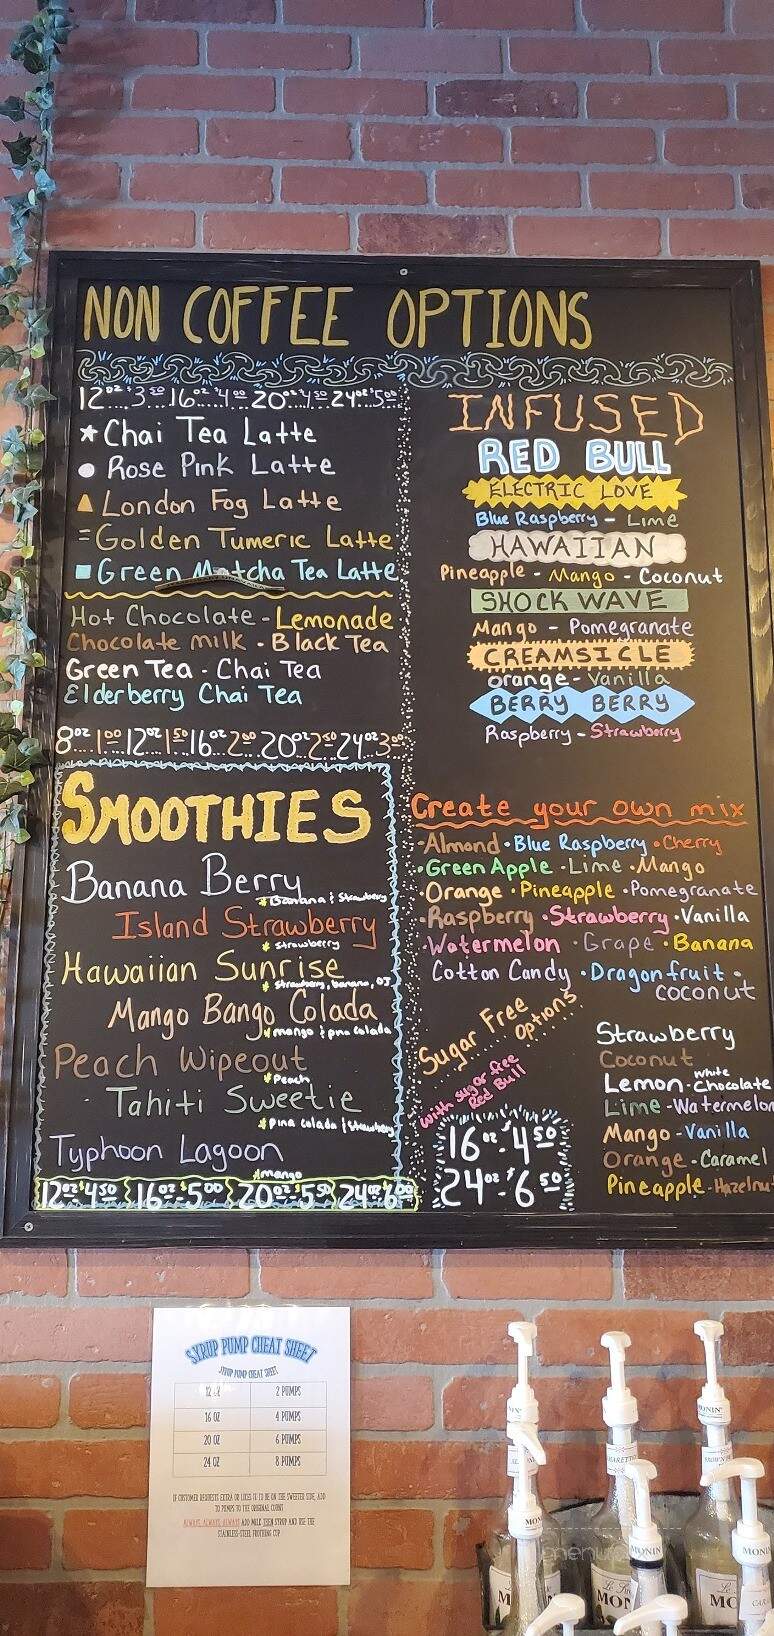 NON COFFEE OPTIONS
12oz...$3.50 16oz..$4.00 20oz..$4.50 24oz..$5.00
★ Chai Tea Latte
Rose Pink Latte
London Fog Latte
Golden Tumeric Latte
Green Matcha Tea Latte
Hot Chocolate - Lemonade
Chocolate milk - Black Tea
Green Tea - Chai Tea
Elderberry Chai Tea
8oz...1.00 12oz..1.50 16oz..2.00 20oz..2.50 24oz..3.00
SMOOTHIES
Banana Berry
Banana & Strawberry
Island Strawberry
strawberry
Hawaiian Sunrise
strawberry, banana, OJ
Mango Bango Colada
mango & pina colada
Peach Wipeout
Peach
Tahiti Sweetie
pina colada & strawberry
Typhoon Lagoon
mango
12oz $4.50 16oz $5.00 20oz $5.50 24oz 6.00
INFUSED
RED BULL
ELECTRIC LOVE
Blue Raspberry - Lime
HAWAIIAN
Pineapple - Mango - Coconut
SHOCK WAVE
Mango - Pomegranate
CREAMSICLE
Orange - Vanilla
BERRY BERRY
Raspberry - Strawberry
Create your own mix
·Almond ·Blue Raspberry ·Cherry
·Green Apple ·Lime ·Mango
·Orange ·Pineapple ·Pomegranate
·Raspberry ·Strawberry ·Vanilla
·Watermelon ·Grape ·Banana
Cotton Candy ·Dragonfruit ·
coconut
Sugar Free
Options
With sugar free
Red Bull
16oz $4.50
24oz $6.50
Strawberry
Coconut
Lemon - white Chocolate
Lime - Watermelon
Mango - Vanilla
Orange - Caramel
Pineapple - Hazelnu
SYRUP PUMP CHEAT SHEET
SYRUP PUMP CHEAT SHEET
12 OZ 2 PUMPS
16 OZ 4 PUMPS
20 OZ 6 PUMPS
24 OZ 8 PUMPS
IF CUSTOMER REQUESTS EXTRA OR LIKES IT TO BE ON THE SWEETER SIDE, ADD
TO PUMPS TO THE ORIGINAL COUNT
ALWAYS, ALWAYS, ALWAYS ADD MILK THEN SYRUP AND USE THE
STAINLESS-STEEL FROTHING CUP
MONIN